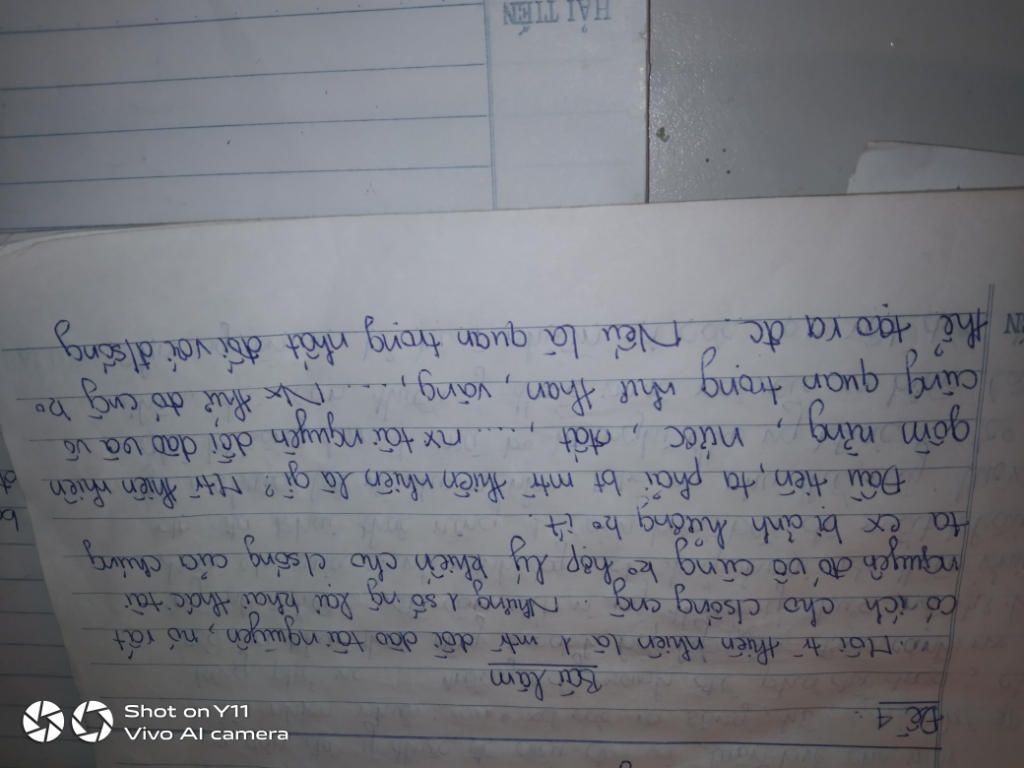 Đề 1:
Bài làm
Môi tr thiên nhiên là 1 mtr dồi dào tài nguyên, nó rất
có ích cho c/sống cng. Nhưng 1 số ng lại khai thác tài
nguyên đó vô cùng ko hợp lý khiến cho c/sống của chúng
ta cx bị ảnh hưởng ko ít.
Đầu tiên, ta phải bt mtr thiên nhiên là gì? Mtr thiên nhiên
gồm nắng, nước, đất, .... nx tài nguyên dồi dào và vô
cùng quan trọng như than, vàng, ... Nx thứ đó cng ko
thể tạo ra đc ... Nếu là quan trọng nhất đối với đ/sống
HẢI TIẾN
Shot on Y11
Vivo AI camera